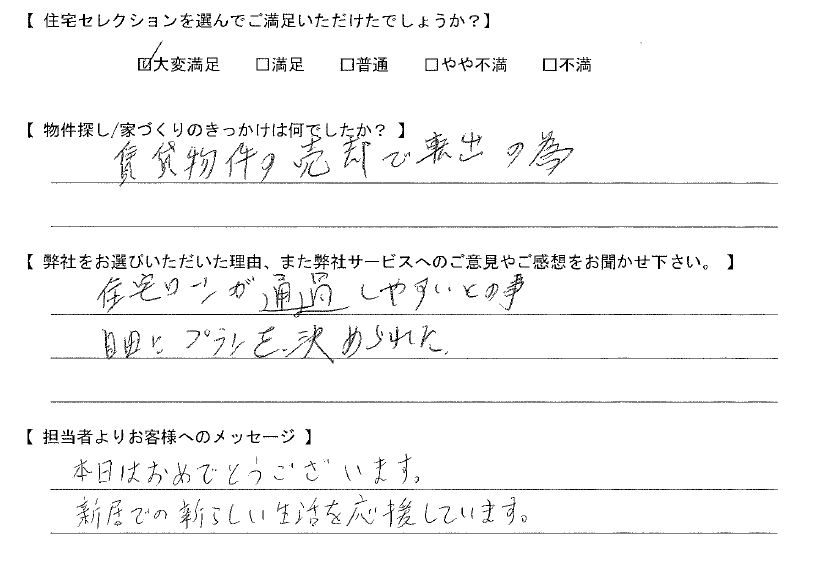 【 住宅セレクションを選んでご満足いただけたでしょうか？】
☑大変満足 □満足 □普通 □やや不満 □不満
【 物件探し/家づくりのきっかけは何でしたか？ 】
賃貸物件の売却で転出の為
【 弊社をお選びいただいた理由、また弊社サービスへのご意見やご感想をお聞かせ下さい。 】
住宅ローンが通過しやすいとの事
自由にプランを決められた。
【 担当者よりお客様へのメッセージ 】
本日はおめでとうございます。
新居での新らしい生活を応援しています。